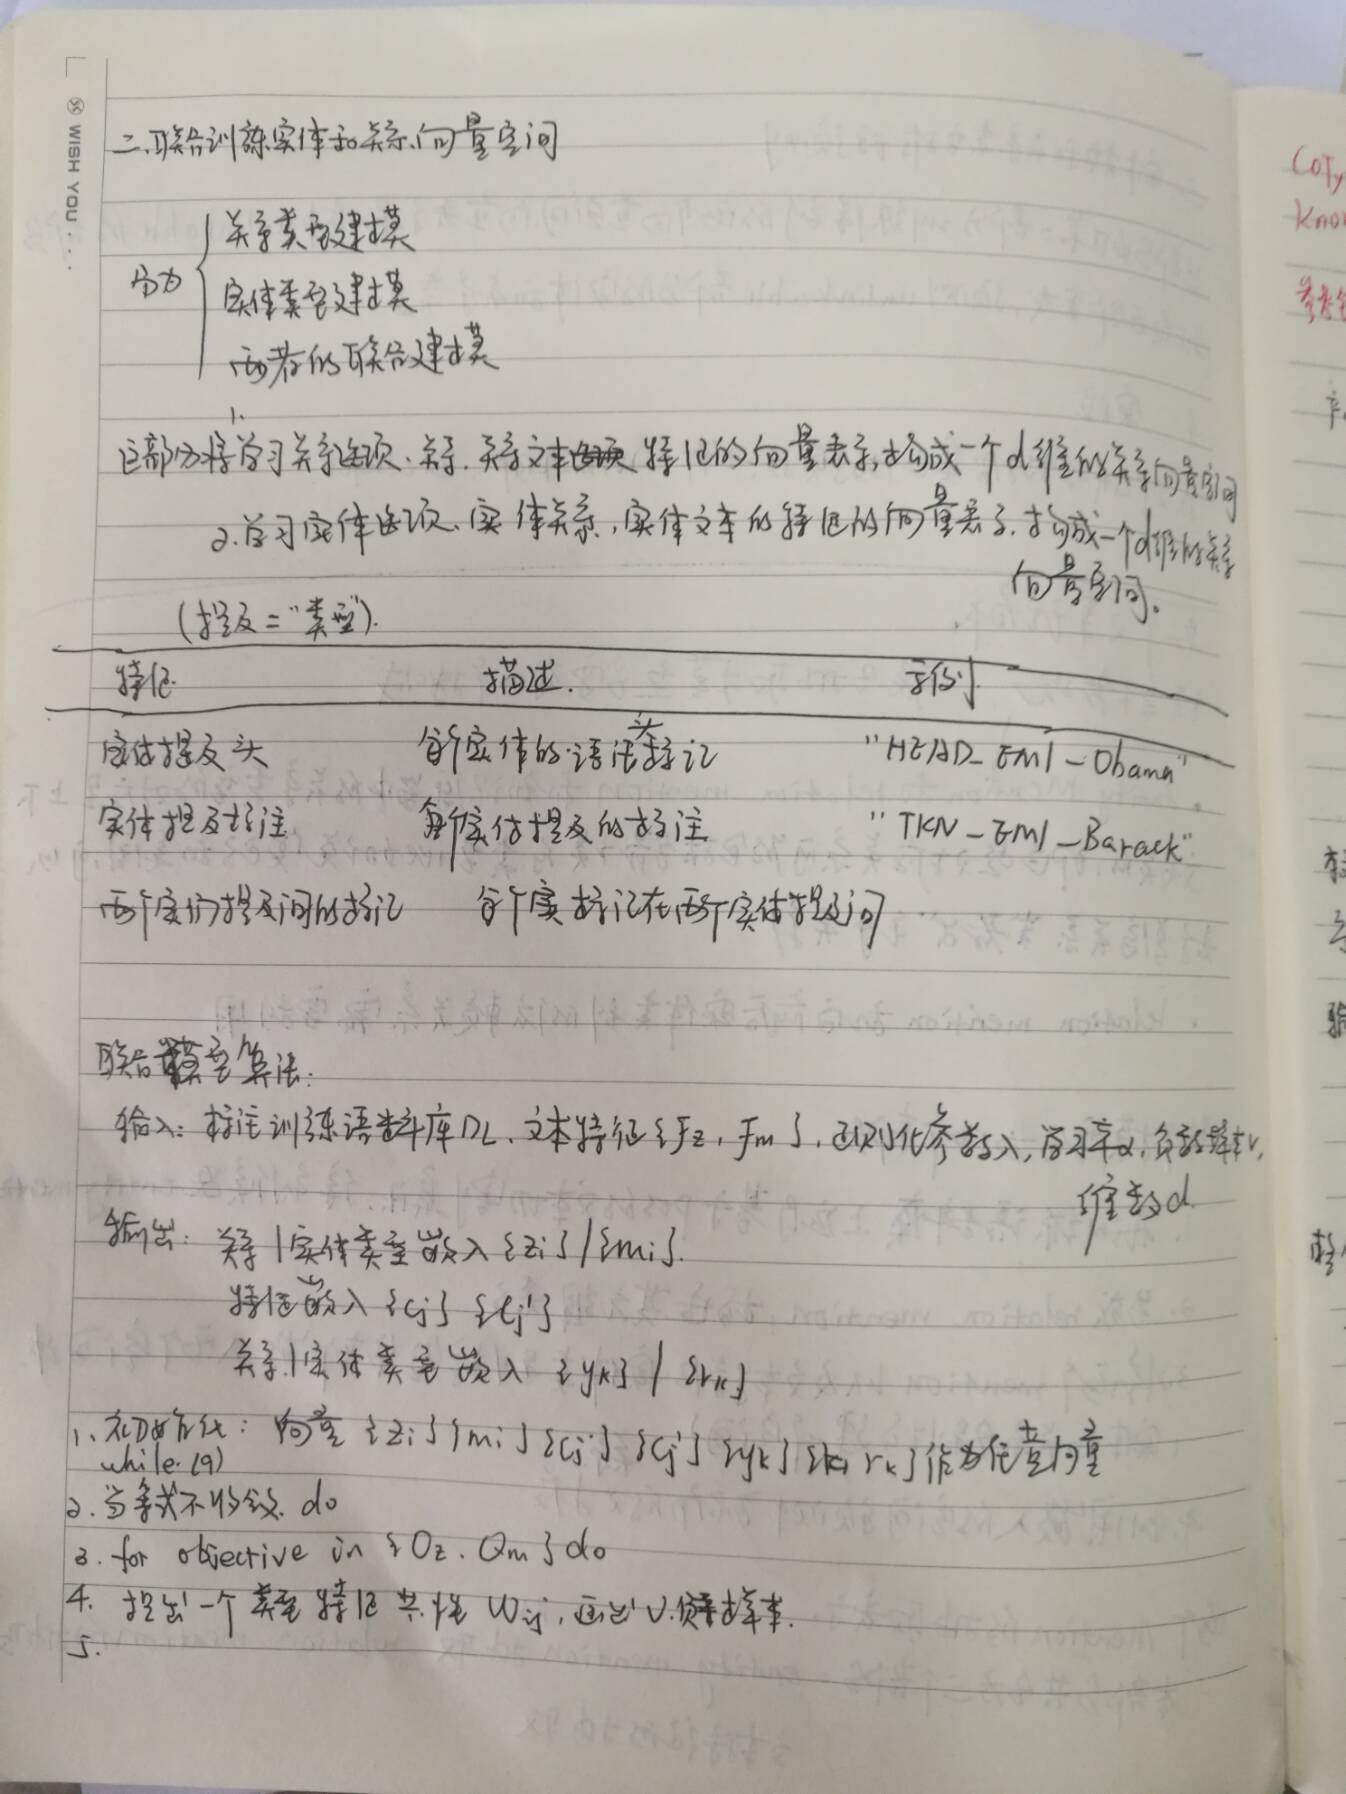 WISH YOU....
二.联合训练实体和关系向量空间
分为
关系类型建模
实体类型建模
两者的联合建模
1.
这部分将学习关系选项、关系、关系文本特征的向量表示,构成一个d维的关系向量空间
2.学习实体选项、实体关系,实体文本的特征的向量表示.构成一个d维的关系
向量空间。
(提及="类型").
特征 描述. 示例.
实体提及头 每个实体的语法头标记 "HEAD_EM1-Obama"
实体提及标注 每个实体提及的标注 "TKN-EM1-Barack"
两个实们提及间的标记 每个 标记在两个实体提及间
联合模型算法:
输入: 标注训练语料库DL、文本特征{Fz, Fm}, 正则化参数λ, 学习率α,
维数d
输出: 关系|实体类型嵌入{zi}/{mi}.
特征嵌入{cj} {cj'}
关系|实体类型嵌入 {yk} / {rk}
1、初始化: 向量{zi}{mi}{cj}{cj'}{yk} 作为任意向量
while (9)
2.当等式不收敛. do
3. for objective in {Oz. Om} do
4. 提出一个类型特征共性Wij,
5.
CoTy
Know